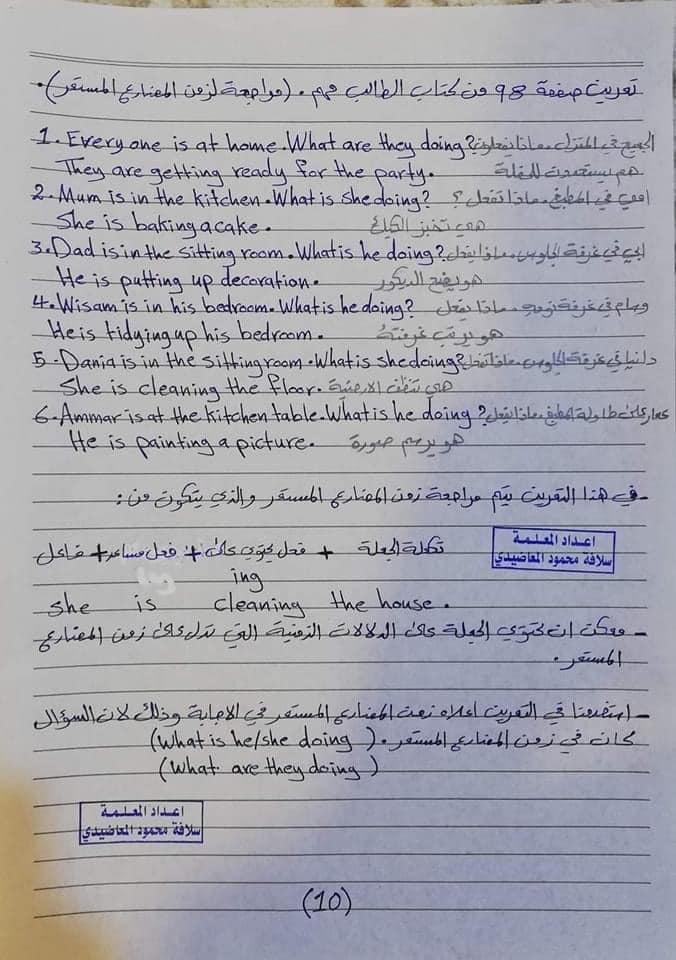 تمرين صفحة 98 من كتاب الطالب مهم . (مراجعة لزمن المضارع المستمر).
1. Everyone is at home. What are they doing? الجميع في المنزل. ماذا يفعلون؟
They are getting ready for the party. هم يستعدون للحفلة
2. Mum is in the kitchen. What is she doing? امي في المطبخ. ماذا تفعل؟
She is baking a cake. هي تخبز الكيك
3. Dad is in the sitting room. What is he doing? ابي في غرفة الجلوس. ماذا يفعل
He is putting up decoration. هو يضع الديكور
4. Wisam is in his bedroom. What is he doing? وسام في غرفة نومه. ماذا يفعل
He is tidying up his bedroom. هو يرتب غرفته
5. Dania is in the sitting room. What is she doing? دانيا في غرفة الجلوس. ماذا تفعل
She is cleaning the floor. هي تنظف الارضية
6. Ammar is at the kitchen table. What is he doing? عمار على طاولة المطبخ. ماذا يفعل
He is painting a picture. هو يرسم صورة
- في هذا التمرين يتم مراجعة زمن المضارع المستمر والذي يتكون من :
اعداد المعلمة
سلافة محمود المعاضيدي
فاعل + فعل مساعد + فعل يحتوي على + تكملة الجملة
ing
she is cleaning the house.
- ممكن ان تحتوي الجملة على الدلالات الزمنية التي تدل على زمن المضارع
المستمر.
- استخدمنا في التمرين اعلاه زمن المضارع المستمر في الاجابة وذلك لان السؤال
كان في زمن المضارع المستمر. (What is he/she doing)
(What are they doing)
اعداد المعلمة
سلافة محمود المعاضيدي
(10)